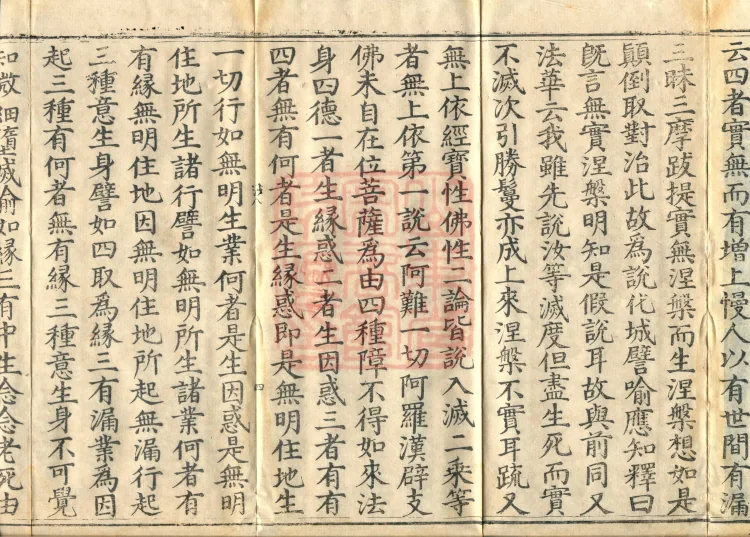 云四者實無而有增上慢人以有世間有漏
三昧三摩跋提實無涅槃而生涅槃想如是
顛倒取對治此故為說化城譬喻應知釋曰
既言無實涅槃明知是假說耳故與前同又
法華云我雖先說汝等滅度但盡生死而實
不滅次引勝鬘亦成上來涅槃不實耳疏又
無上依經寶性佛性二論皆說入滅二乘等
者無上依第一說云阿難一切阿羅漢辟支
佛未自在位菩薩為由四種障不得如來法
身四德一者生緣惑二者生因惑三者有有
四者無有何者是生緣惑即是無明住地生
一切行如無明生業何者是生因惑是無明
住地所生諸行譬如無明所生諸業何者有
有緣無明住地因無明住地所起無漏行起
三種意生身譬如四取為緣三有漏業為因
起三種有何者無有緣三種意生身不可覺
知微細墮滅喻如緣三有中生念念老死由